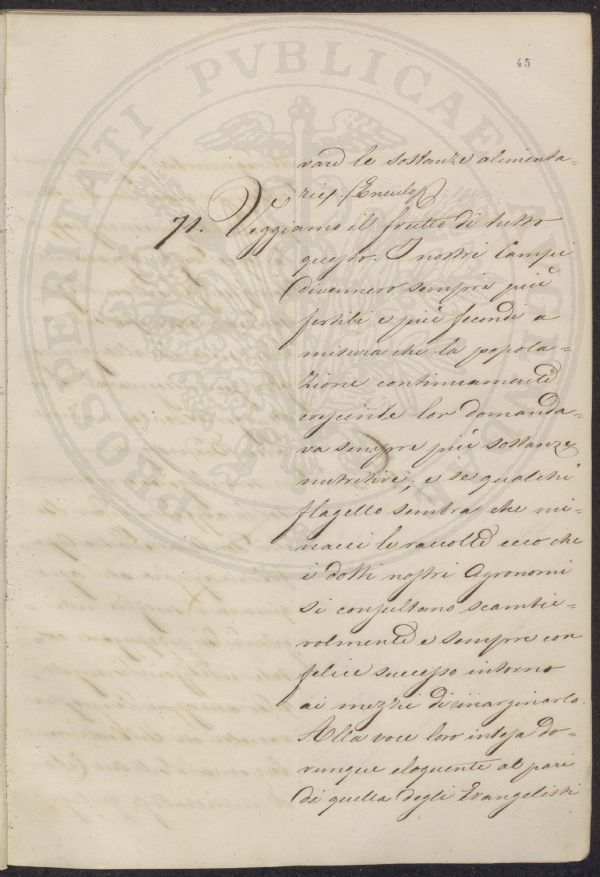 45
vare le sostanze alimenta-
rie). (Enciclop.)
71. Veggiamo il frutto di tutto
questo. I nostri Campi
divennero sempre più
fertili e più fecondi a
misura che la popola-
zione continuamente
crescente lor domanda-
va sempre più sostanze
nutritive; e se qualche
flagello sembra che mi-
nacci le raccolte ecco che
i dotti nostri Agronomi
si consultano scambie-
volmente e sempre con
felice successo intorno
ai mezzi di
Alla voce loro intesa do-
vunque eloquente al pari
di quella degli Evangelisti
PROSPERITATI PVBLICAE